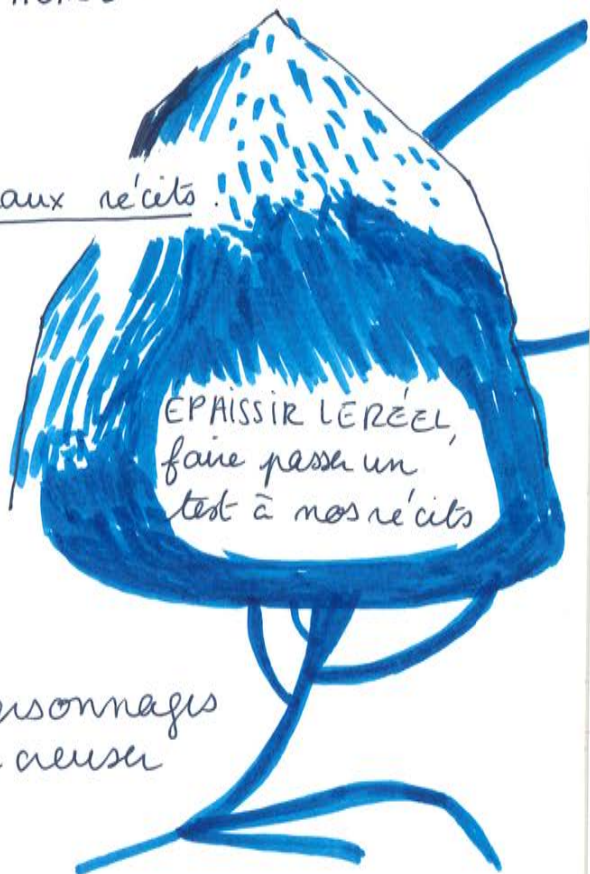 aux récits.
EPAISSIR LE RÉEL,
faire passer un
test à nos récits
personnages
creuser